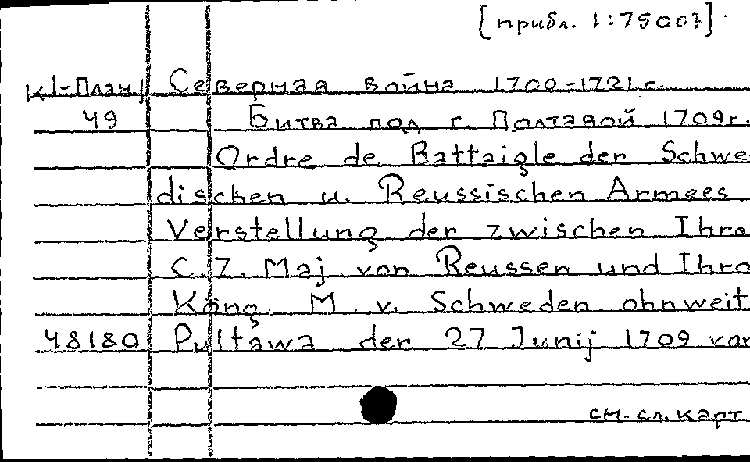 [прибл. 1:7500?]
К1-План Северная война 1700-1721 г.
49 Битва под г. Полтавой 1709г.
Ordre de Battaigle der Schwe
dischen u. Reussischen Armees
Verstellung der zwischen Ihro
C.Z. Maj von Reussen und Ihro
Köng. M. v. Schweden ohnweit
48180 Pultawa der 27 Junij 1709 vor
см. сл. карт